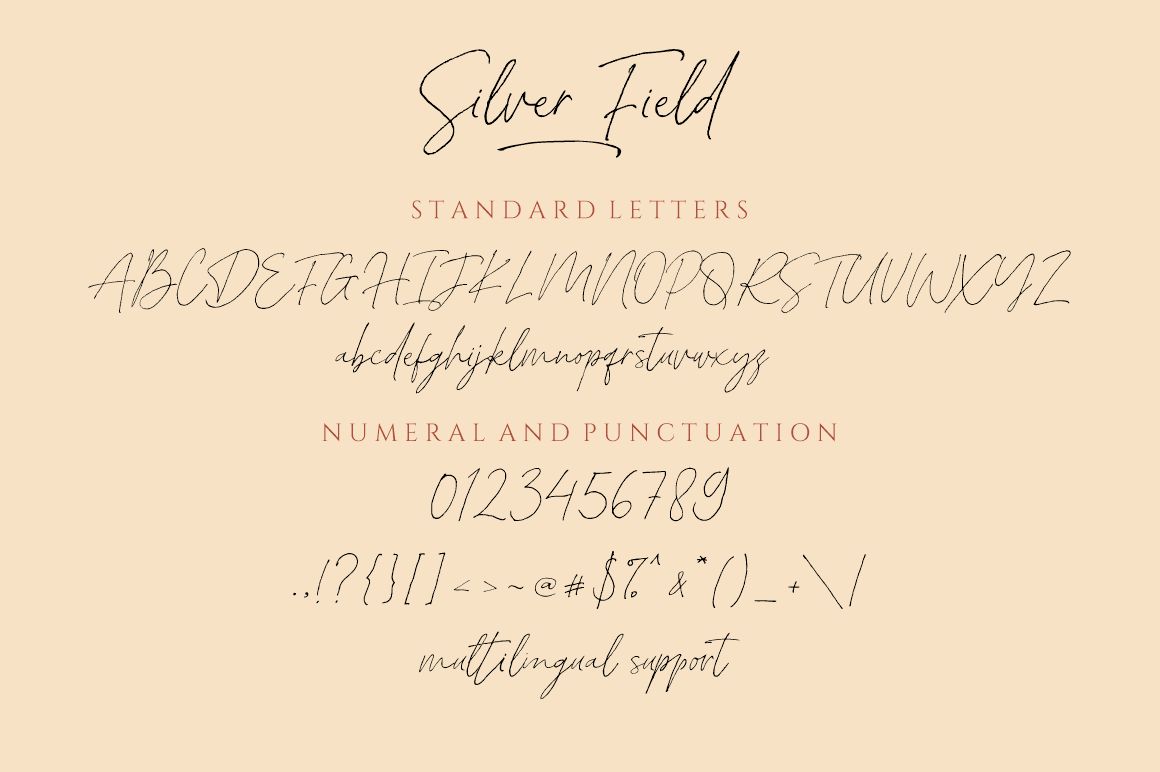 Silver Field
STANDARD LETTERS
ABCDEFGHIJKLMNOPQRSTUVWXYZ
abcdefghijklmnopqrstuvwxyz
NUMERAL AND PUNCTUATION
0123456789
.,!?{}[]<>~@#$%^&*()_+\/
multilingual support